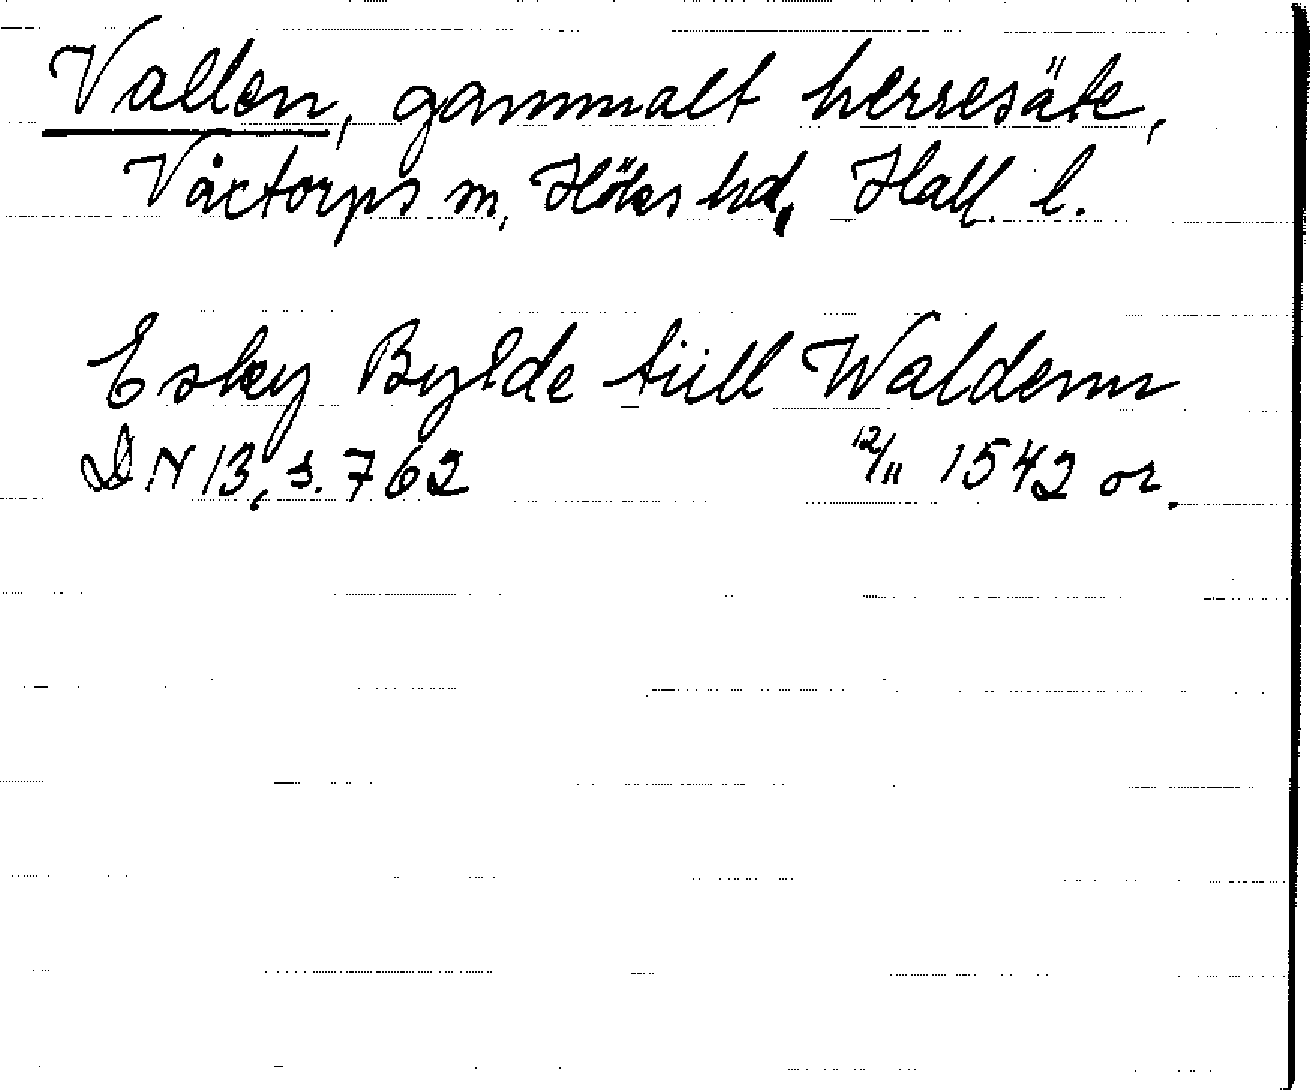 Vallen, gammalt herresäte,
Våxtorps sn, Höks hd, Hall. l.
Esky Bylde tiill Waldenn
DN 13, s. 762 12/11 1542 or.